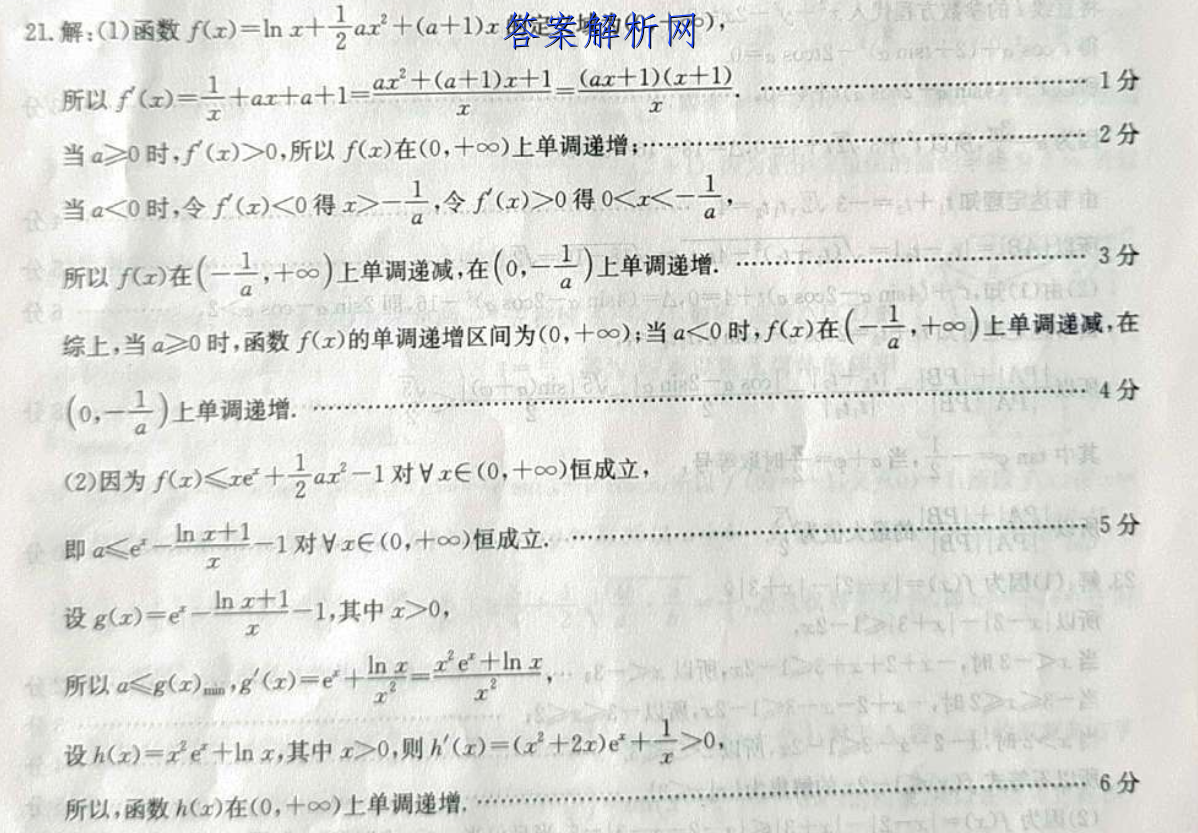 21.解:(1)函数 f(x)=ln x+1/2ax²+(a+1)x 的定义域为(0,+∞),
答案解析网
所以 f′(x)=1/x+ax+a+1=(ax²+(a+1)x+1)/x=((ax+1)(x+1))/x. ……………… 1分
当 a≥0 时,f′(x)>0,所以 f(x)在(0,+∞)上单调递增;……………… 2分
当 a<0 时,令 f′(x)<0 得 x>-1/a,令 f′(x)>0 得 0<x<-1/a,
所以 f(x)在(-1/a,+∞)上单调递减,在(0,-1/a)上单调递增. ……………… 3分
综上,当 a≥0 时,函数 f(x)的单调递增区间为(0,+∞);当 a<0 时,f(x)在(-1/a,+∞)上单调递减,在
(0,-1/a)上单调递增. ……………… 4分
(2)因为 f(x)≤xeˣ+1/2ax²-1 对∀x∈(0,+∞)恒成立,
即 a≤eˣ-(ln x+1)/x-1 对∀x∈(0,+∞)恒成立. ……………… 5分
设 g(x)=eˣ-(ln x+1)/x-1,其中 x>0,
所以 a≤g(x)min,g′(x)=eˣ+ln x/x²=(x²eˣ+ln x)/x²,
设 h(x)=x²eˣ+ln x,其中 x>0,则 h′(x)=(x²+2x)eˣ+1/x>0,
所以,函数 h(x)在(0,+∞)上单调递增. ……………… 6分